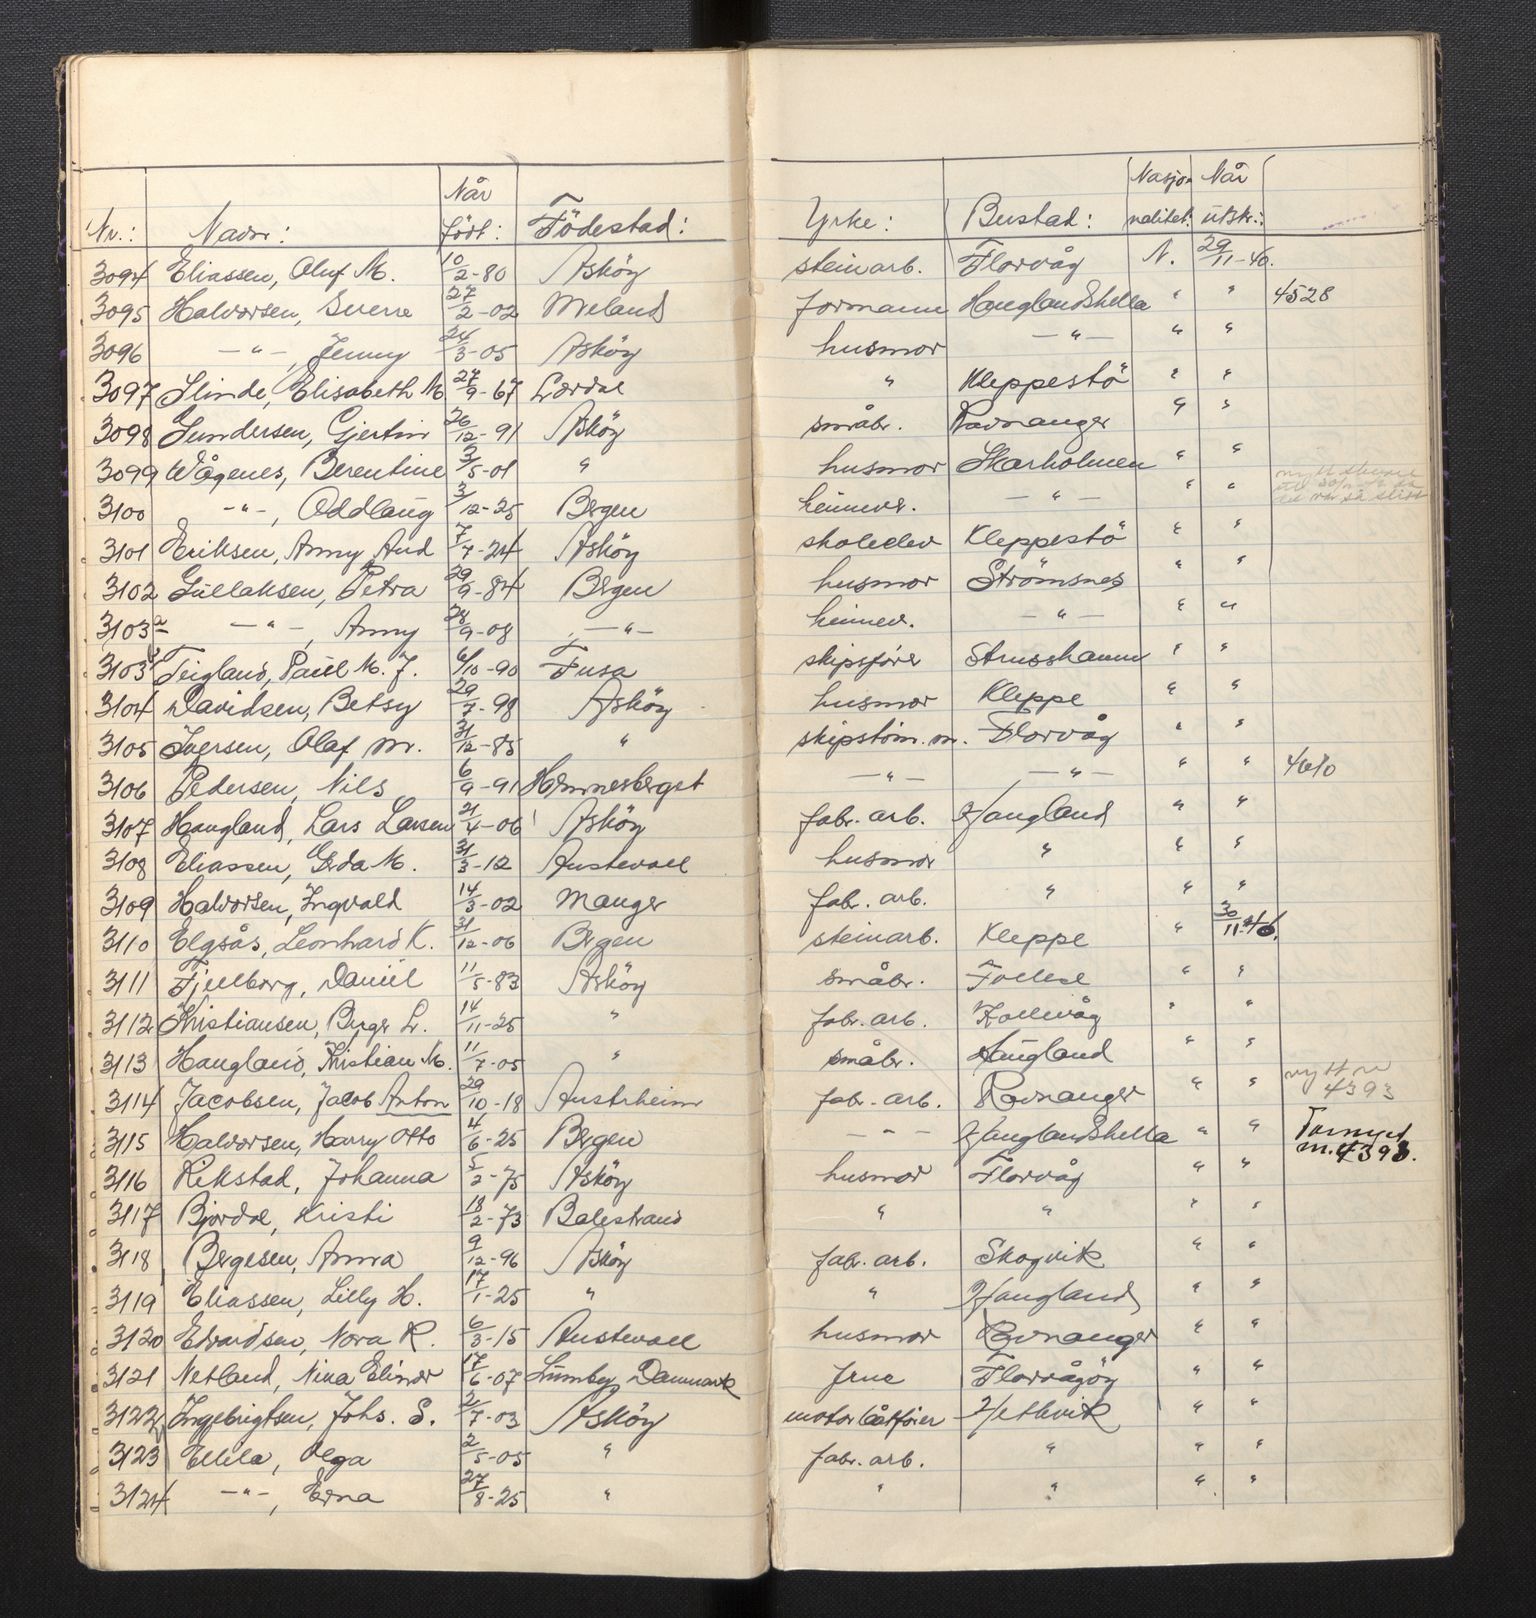 Nr.: Navn: Når født: Födestad: Yrke: Bustad: Nasjonalitet: Når utskr.:
3094 Eliassen, Oluf M. 10/2-80 Asköy steinarb. Florvåg N. 29/11-40.
3095 Halvorsen, Sverre 27/2-02 Meland formann Hauglandshella " " 4528
3096 —"—, Jenny 24/3-05 Asköy husmor —"— " "
3097 Slinde, Elisabeth M. 27/9-67 Lærdal " Kleppestö " "
3098 Gundersen, Gjertine 26/12-91 Asköy småbr. Ravnanger " "
3099 Wågenes, Berentine 3/5-01 " husmor Skarholmen " "
3100 —"—, Oddlaug 3/12-25 Bergen heimev. —"— " " nytt
3101 Eriksen, Anny Aud 7/7-24 Asköy skoleelev Kleppestö " "
3102 Gullaksen, Petra 29/9-84 Bergen husmor Strömsnes " "
3103 a —"—, Anny 28/9-08 —"— heimev. —"— " "
3103 Teigland, Paul M. J. 6/10-90 Fusa skipsförer Strusshamn " "
3104 Davidsen, Betsy 29/7-98 Asköy husmor Kleppe " "
3105 Iversen, Olaf M. 31/12-85 " skipstöm.m. Florvåg " "
3106 Pedersen, Nils 6/9-91 Hemnesberget —"— —"— " " 4610
3107 Haugland, Lars Larsen 21/4-06 Asköy fabr. arb. Haugland " "
3108 Eliassen, Gerda M. 31/3-12 Austevoll husmor " " "
3109 Halvorsen, Ingvald 14/3-02 Manger fabr. arb. " " "
3110 Elgsås, Leonhard K. 31/12-06 Bergen steinarb. Kleppe " 30/11-40.
3111 Fjellborg, Daniel 11/5-83 Asköy småbr. Follese " "
3112 Kristiansen, Birger L. 14/11-25 " fabr. arb. Kollevåg " "
3113 Haugland, Kristian M. 11/7-05 " småbr. Haugland " "
3114 Jacobsen, Jacob Anton 29/10-18 Austrheim fabr. arb. Ravnanger " " nytt nr 4393
3115 Halvorsen, Harry Otto 4/6-25 Bergen —"— Hauglandshella " " Fornyet nr. 4398.
3116 Rikstad, Johanna 5/2-75 Asköy husmor Florvåg " "
3117 Bjørdal, Kristi 18/2-73 Balestrand " " " "
3118 Bergesen, Anna 9/12-96 Asköy fabr. arb. Skogvik " "
3119 Eliassen, Lilly H. 17/1-25 " " Haugland " "
3120 Edvardsen, Nora R. 6/3-15 Austevoll husmor Ravnanger " "
3121 Netland, Nina Elinor 17/6-07 Lumby Danmark frue Florvågöy " "
3122 Ingebrigtsen, Johs. S. 2/7-03 Asköy motorbåtförer Hetlevik " "
3123 Ellila, Olga 2/5-05 " fabr. arb. " " "
3124 —"—, Erna 27/8-25 " " " " "